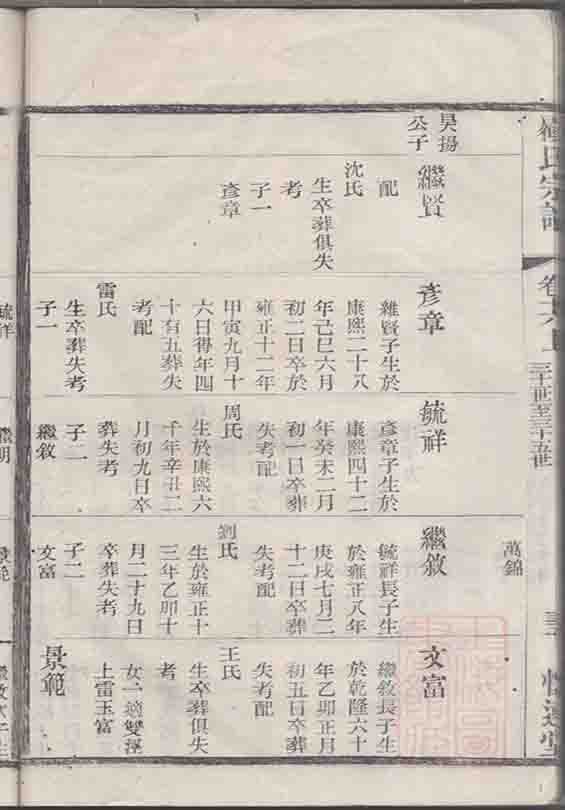 昊揚
公子
繼賢
配
沈氏
生卒葬俱失
考
子一
彥章
彥章
繼賢子生於
康熙二十八
年己巳六月
初二日卒於
雍正十二年
甲寅九月十
六日得年四
十有五葬失
考配
雷氏
生卒葬失考
子一
毓祥
毓祥
彥章子生於
康熙四十二
年癸未二月
初一日卒葬
失考配
周氏
生於康熙六
十年辛丑二
月初九日卒
葬失考
子二
繼敘
繼明
萬錦
繼敘
毓祥長子生
於雍正八年
庚戌七月二
十二日卒葬
失考配
劉氏
生於雍正十
三年乙卯十
月二十九日
卒葬失考
子二
文富
景範
文富
繼敘長子生
於乾隆六十
年乙卯正月
初五日卒葬
失考配
王氏
生卒葬俱失
考
女一適雙溼
上雷玉富
景範
繼敘次子生
氏宗譜
三十一世至三十五世